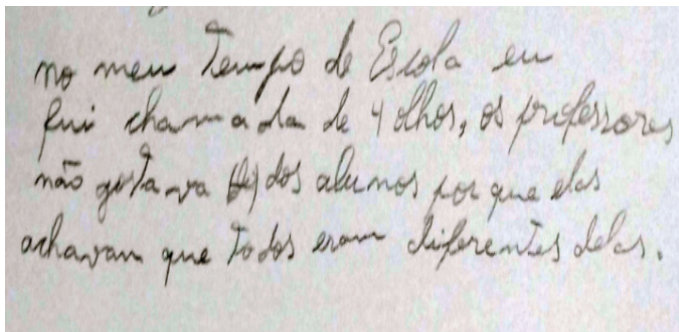 no meu Tempo de Escola eu
fui chamada de 4 olhos, os professores
não gostava dos alunos por que elas
achavam que todos eram diferentes delas.